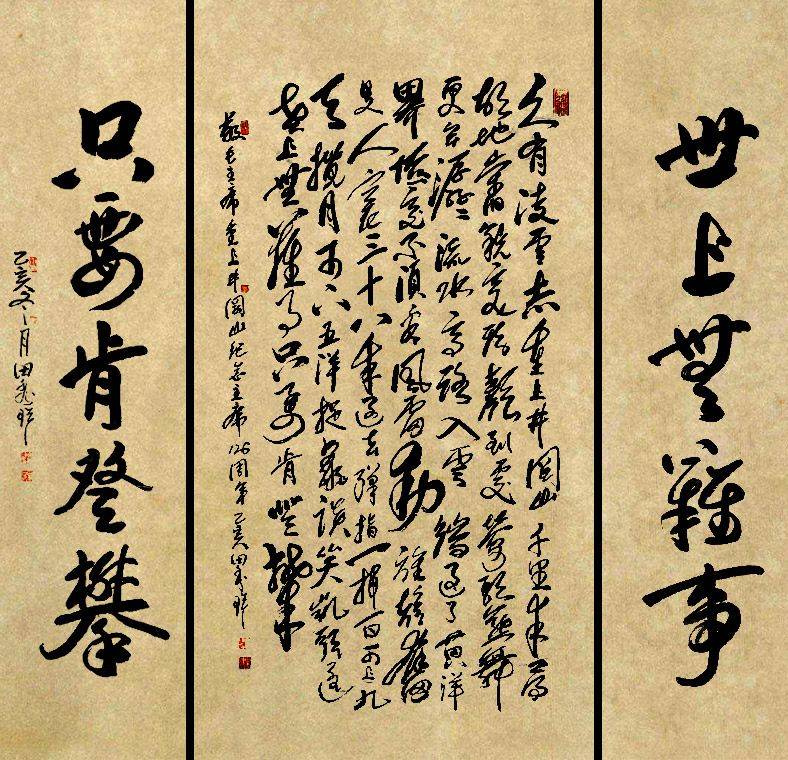 世上無難事
久有凌雲志重上井岡山千里來尋
故地舊貌變新顏到處鶯歌燕舞
更有潺潺流水高路入雲端過了黃洋
界險處不須看風雷動旌旗奮
是人寰三十八年過去彈指一揮間可上九
天攬月可下五洋捉鱉談笑凱歌還
世上無難事只要肯登攀
敬毛主席重上井岡山紀念主席126周年己亥田祥
只要肯登攀
己亥冬月田祥